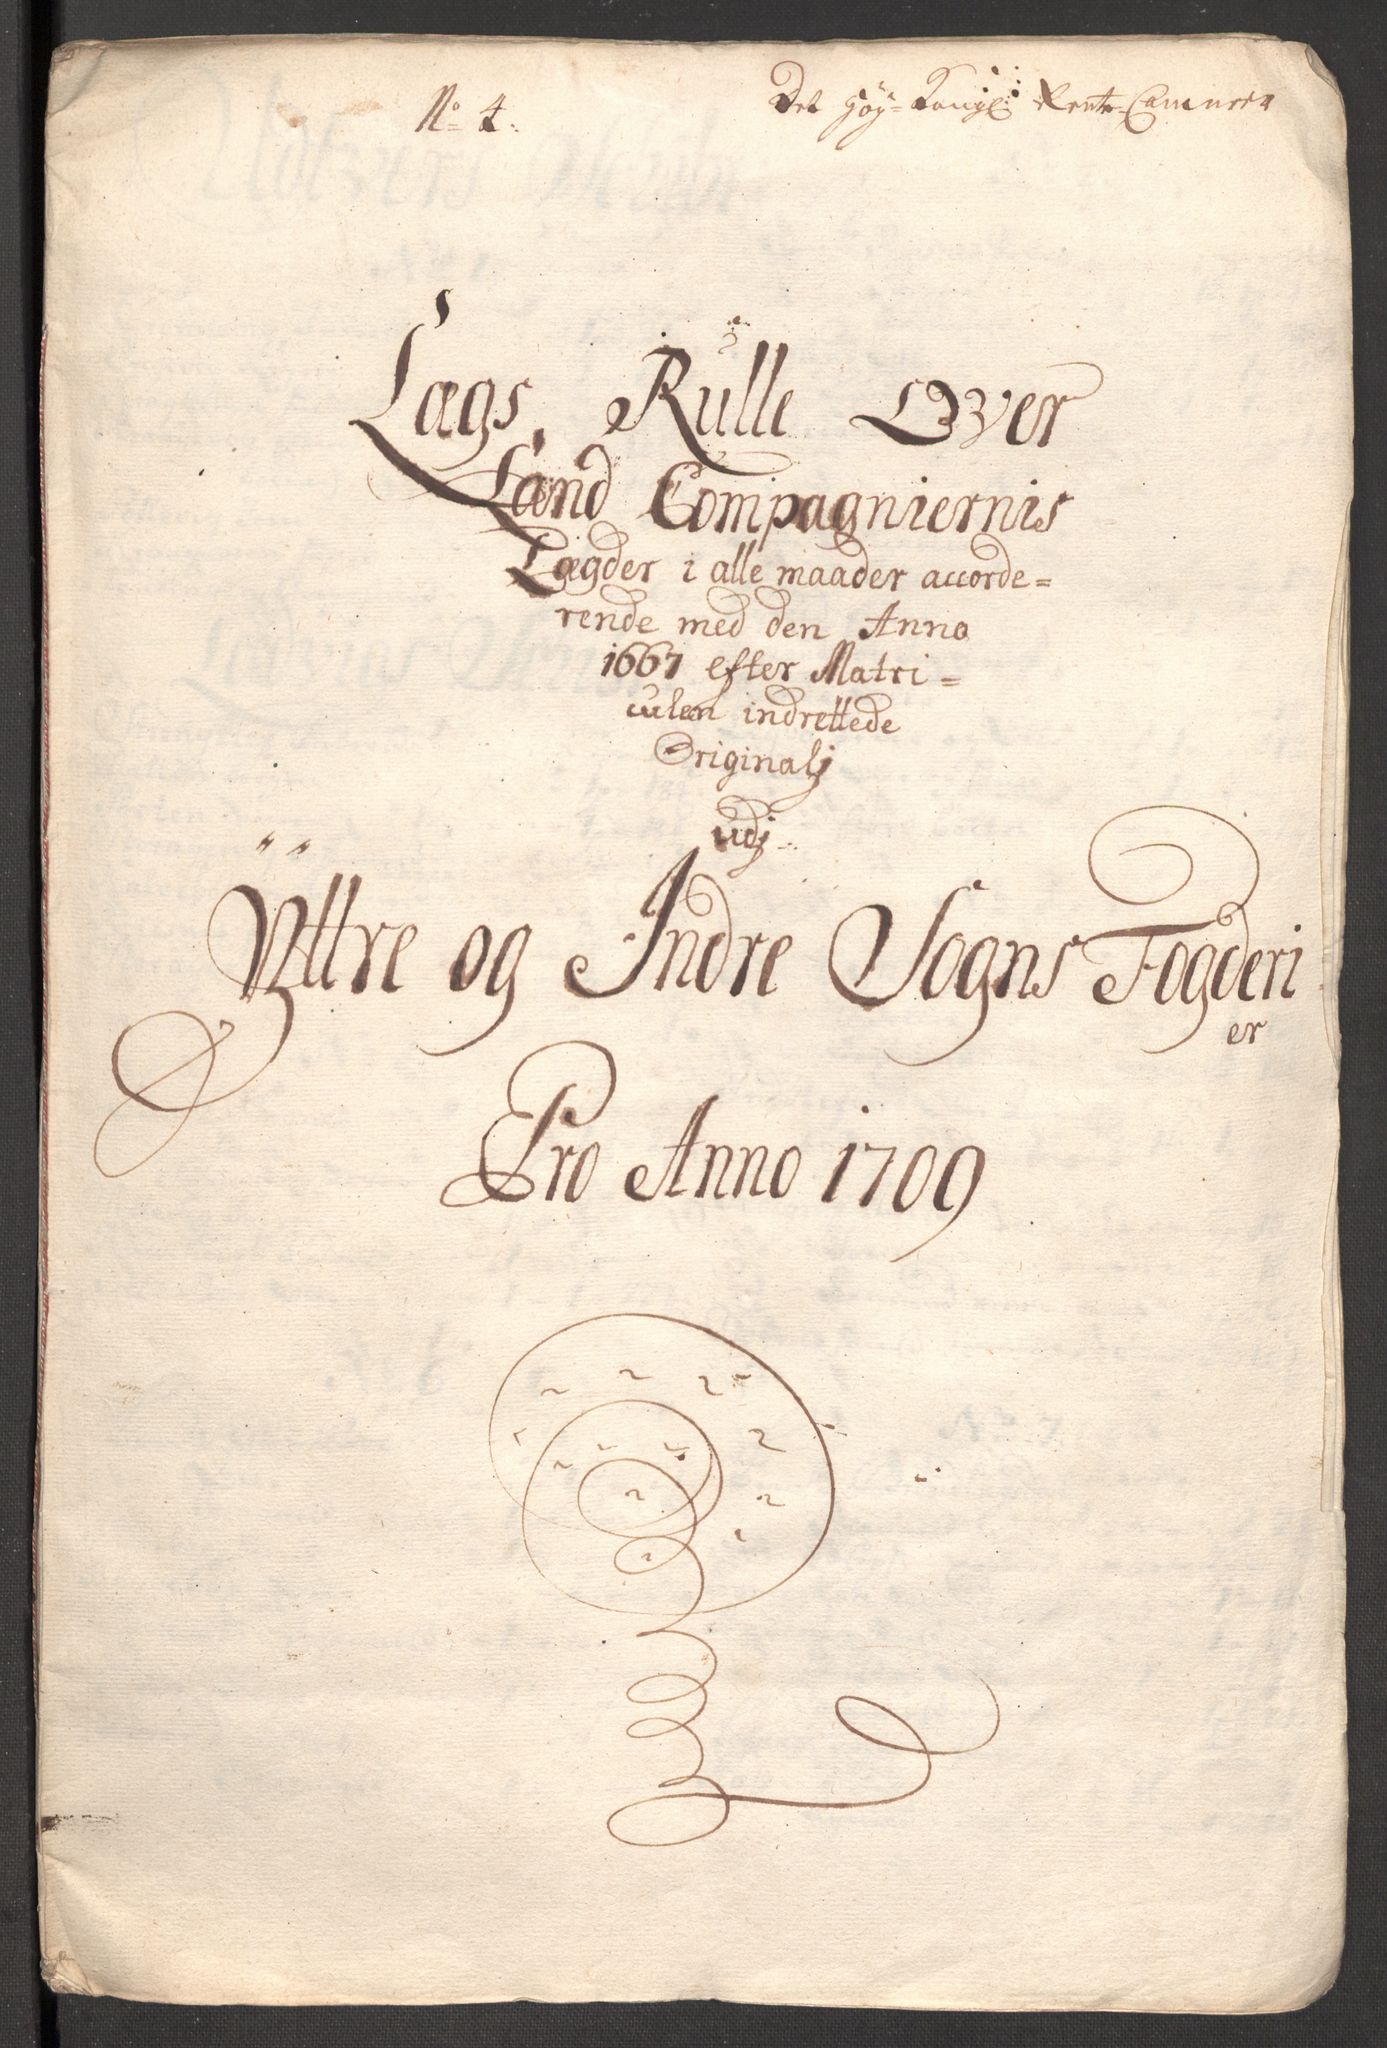 No 4.
Det Höy-Kongl: Rente-Cammer
Lægs Rulle Over
Land Compagniernis
Lægder i alle maader accorde=
rende med den Anno
1667 efter Matri=
culen indrettede
Originalj
udj
Yttre og Indre Sogns Fogderi
er
Pro Anno 1709